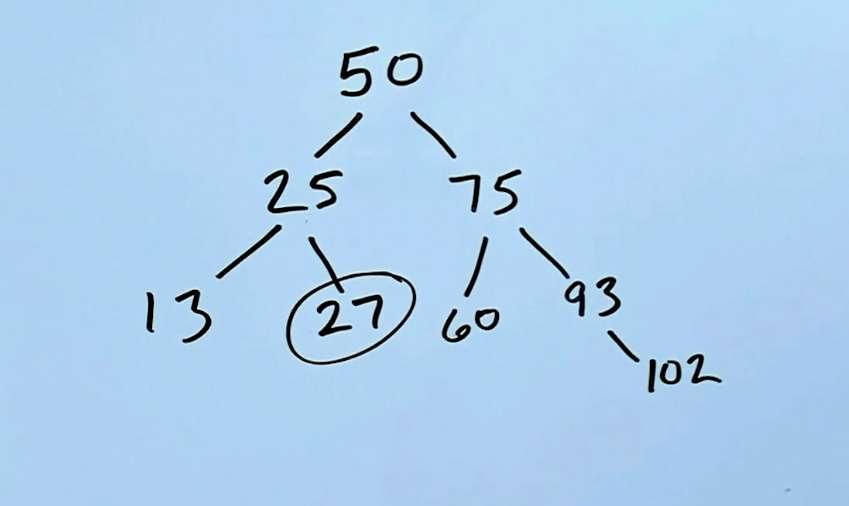 50
25 75
13 27 60 93
102